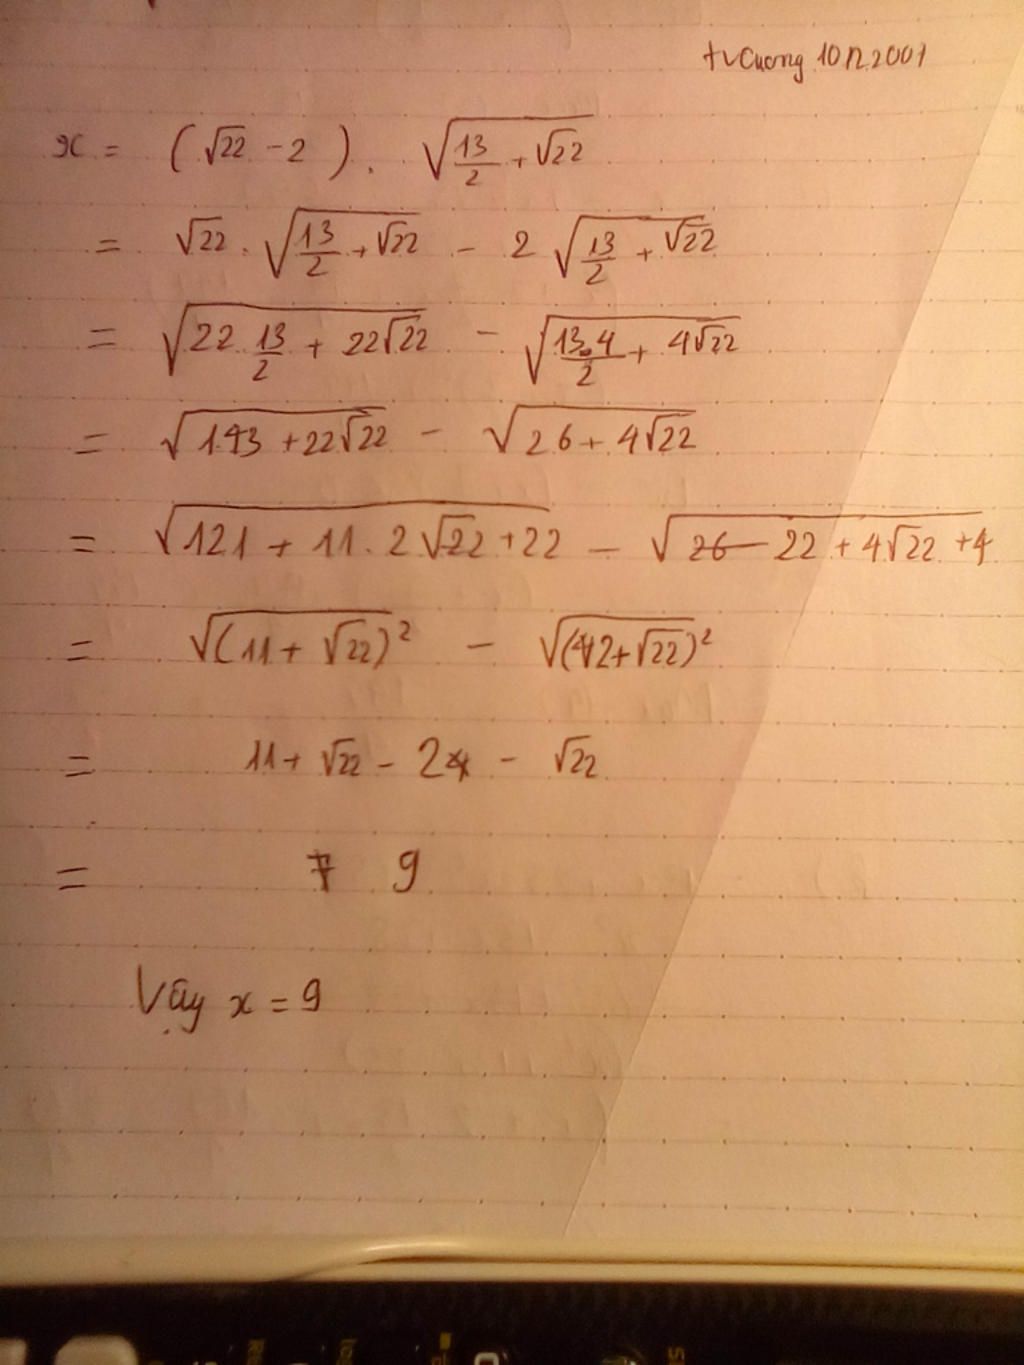 tvCuong 1012.2001
x = (√22 - 2) . √(13/2 + √22)
= √22 . √(13/2 + √22) - 2 √(13/2 + √22)
= √(22 . 13/2 + 22√22) - √(13.4/2 + 4√22)
= √(143 + 22√22) - √(26 + 4√22)
= √(121 + 11 . 2√22 + 22) - √(22 + 4√22 + 4)
= √(11 + √22)² - √(2 + √22)²
= 11 + √22 - 2 - √22
= 9
Vậy x = 9